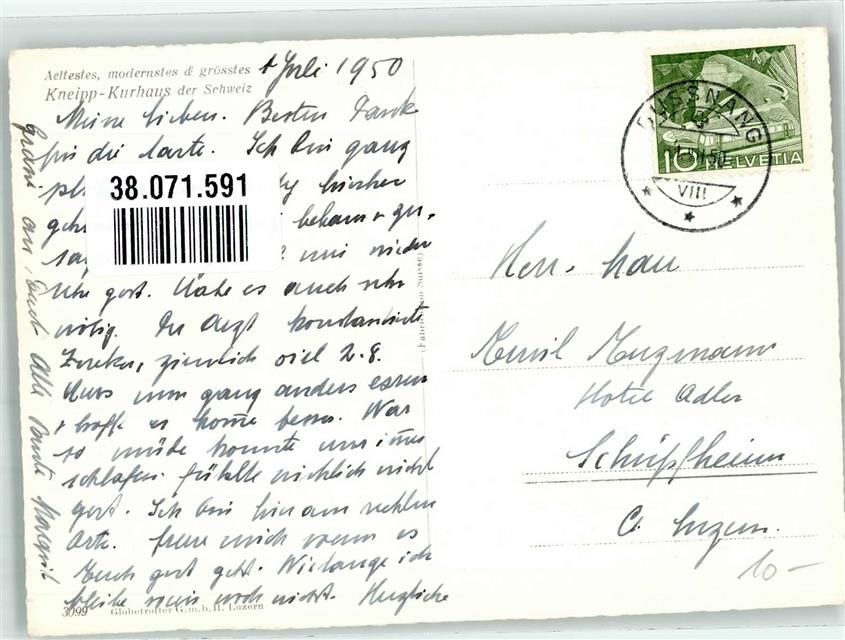 Aeltestes, modernstes & grösstes
Kneipp-Kurhaus der Schweiz
1 Juli 1950
Meine lieben. Besten Dank
für die Karte. Ich bin ganz
38.071.591
hierher
bekam
wieder
gut. Habe es auch sehr
nötig. Der Arzt konstantierte
Zucker, ziemlich viel 2.8.
Muss nun ganz anders essen
+ hoffe es kome besser. War
so müde konnte nur imer
schlafen. fühlte wirklich nicht
gut. Ich bin hier am rechten
Ort. freue mich wenn es
Euch gut geht. Wielange ich
bleibe weis noch nicht. Herzliche
Grüsse an Euch Alle
3099
Globetrotter G.m.b.H. Luzern
DUSSNANG
VIII
10 HELVETIA
Herr. Frau
Emil Enzmann
Hotel Adler
Schüpfheim
Ct. Luzern.
10-